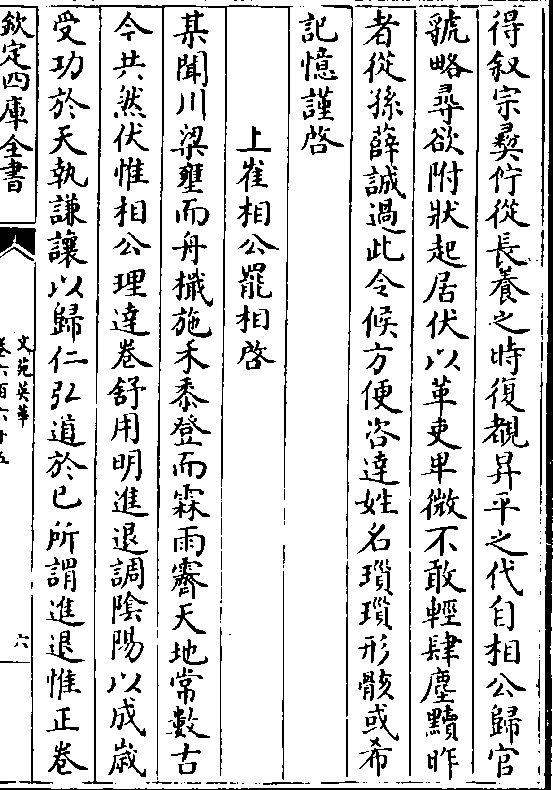 得叙宗彞佇從長養之時復覩昇平之代自相公歸官
虢略尋欲附狀起居伏以革吏卑微不敢輕肆塵黷昨
者從孫薛誠過此令候方便咨達姓名瑣瑣形骸或希
記憶謹啓
上崔相公罷相啓
某聞川梁壅而舟檝施禾黍登而霖雨霽天地常數古
今共然伏惟相公理達卷舒用明進退調陰陽以成歳
受功於天執謙讓以歸仁弘道於已所謂進退惟正卷
欽定四庫全書
文苑英華
卷六百六十五
六